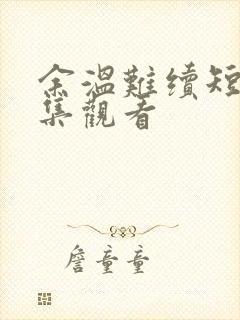 余溫難續短
集觀看
詹童童